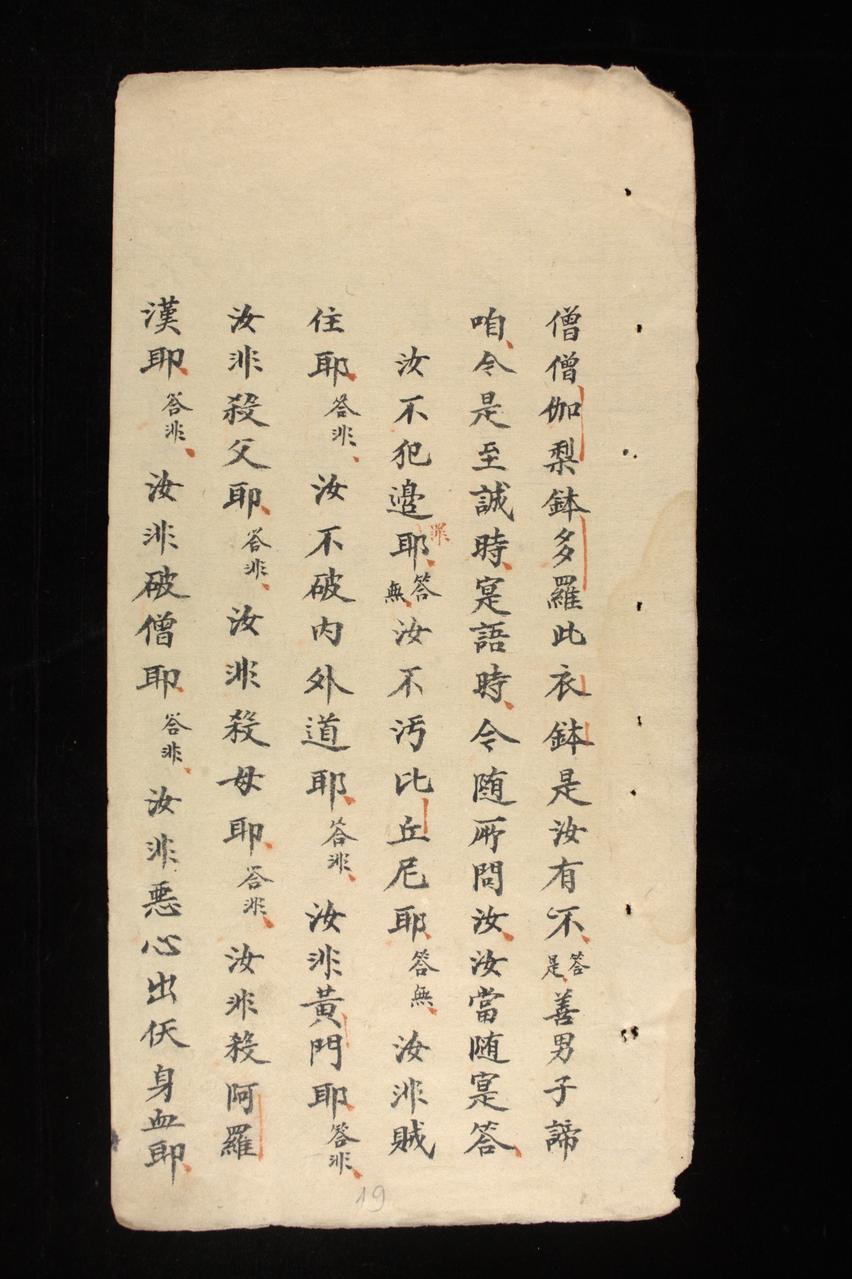 僧僧伽梨鉢多羅此衣鉢是汝有不答是善男子諦
咱令是至誠時寔語時令随所問汝汝當随寔答
汝不犯邉耶罪答無汝不汚比丘尼耶答無汝非賊
住耶答非汝不破内外道耶答非汝非黃門耶答非
汝非殺父耶答非汝非殺母耶答非汝非殺阿羅
漢耶答非汝非破僧耶答非汝非悪心出仸身血耶
19